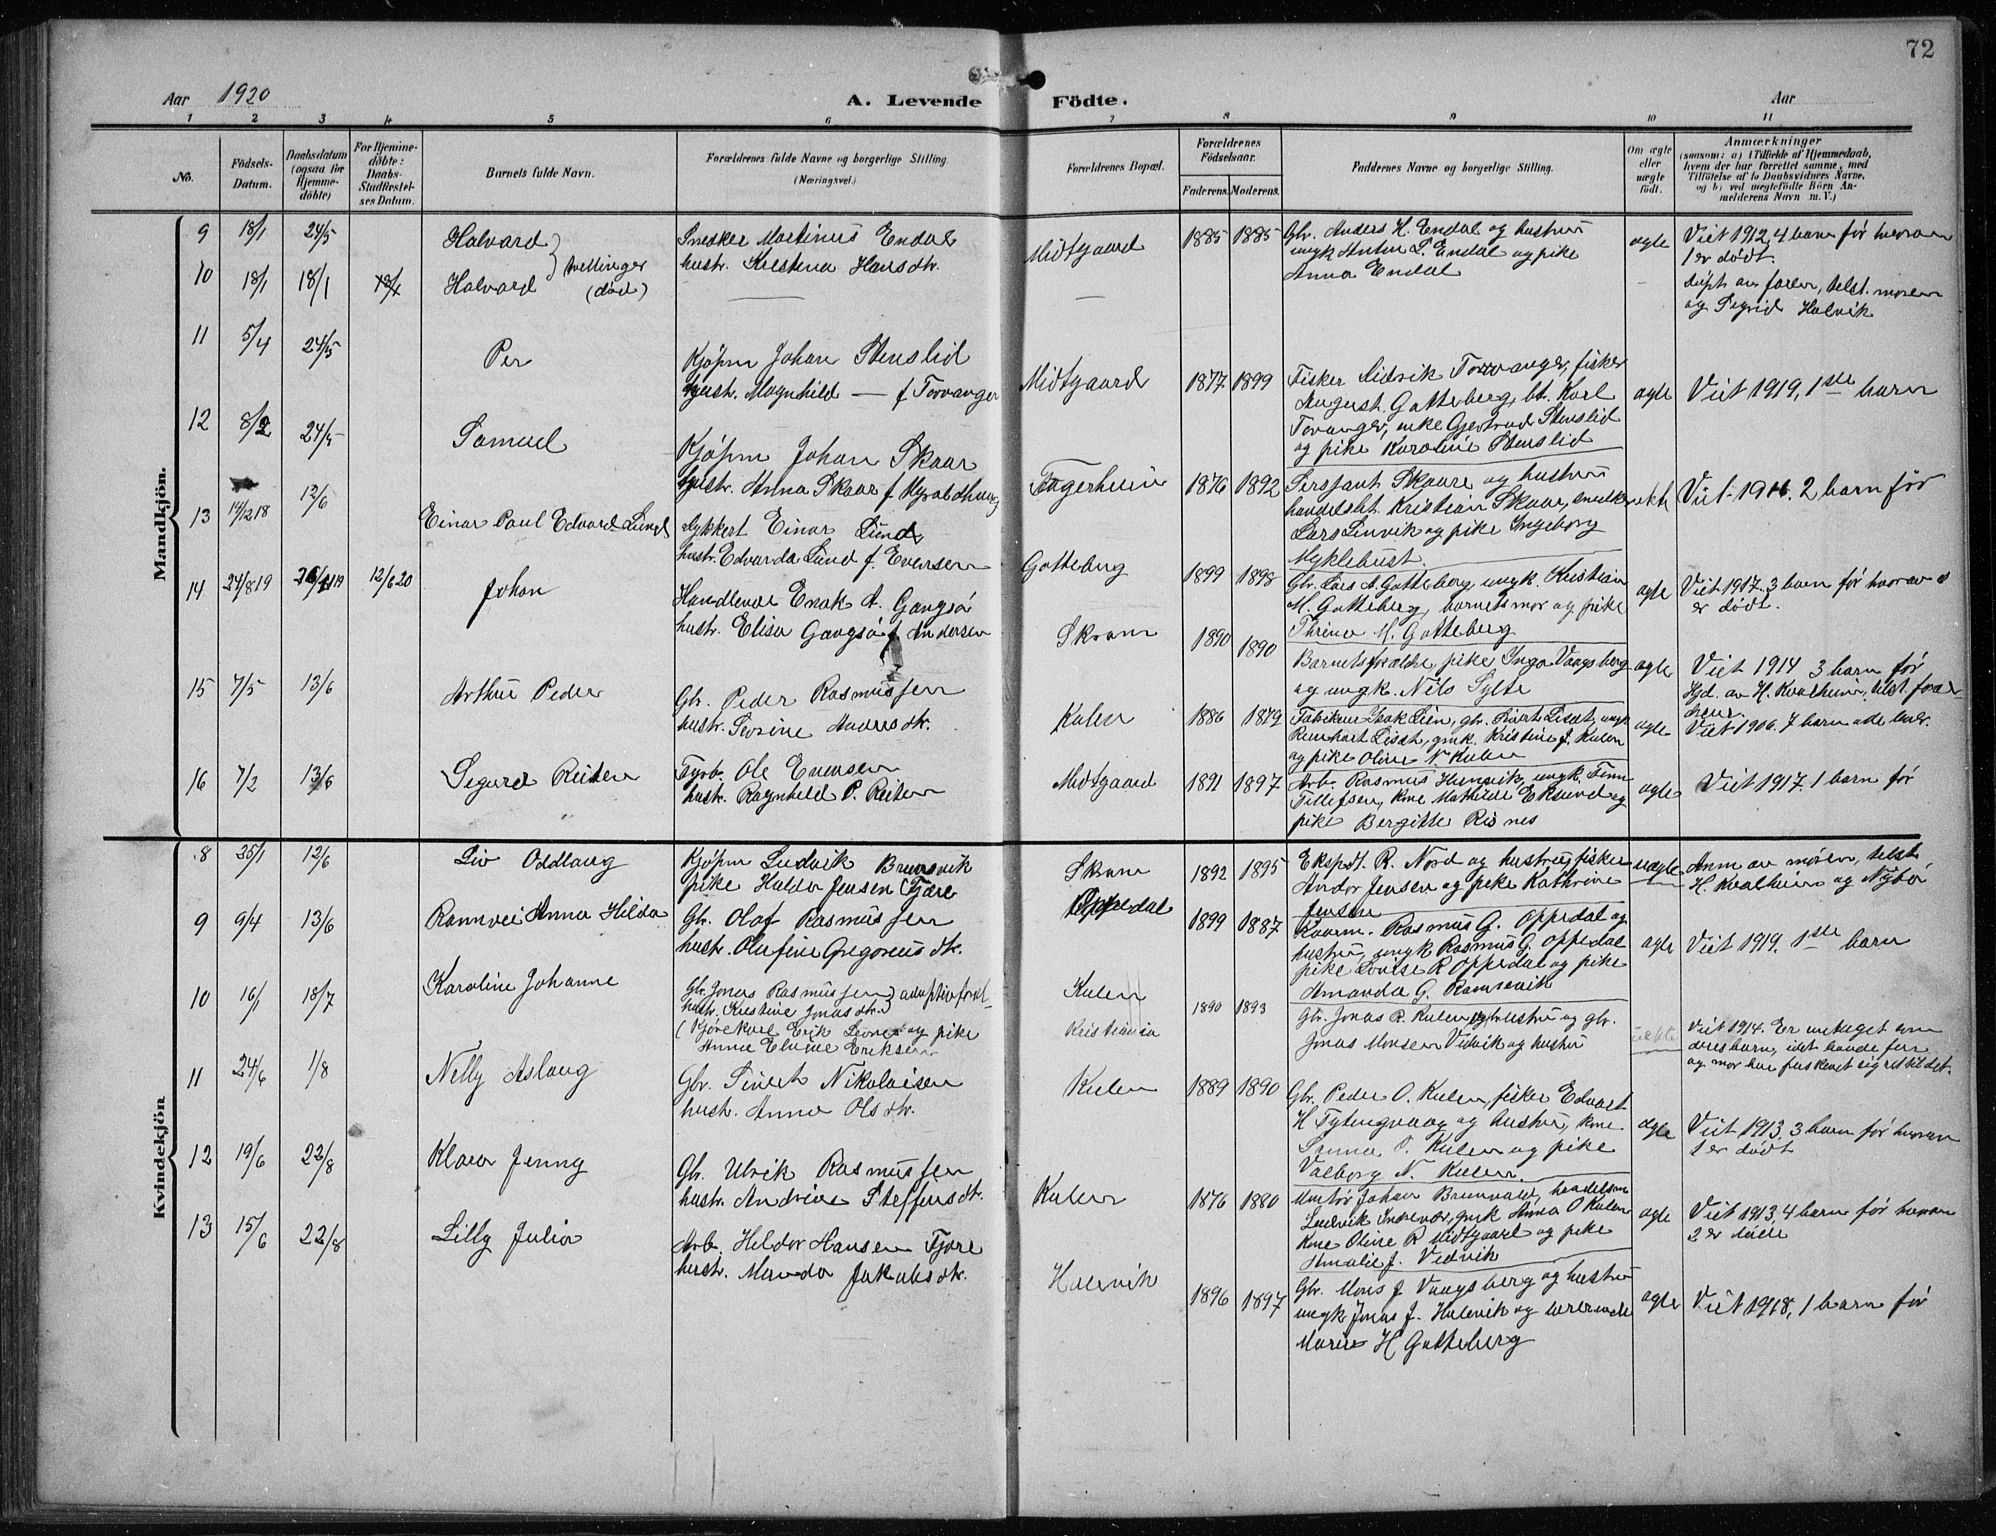 72
Aar 1920
A. Levende Födte.
Aar
1 2 3 4 5 6 7 8 9 10 11
No.
Födsels-Datum.
Daabsdatum (ogsaa for Hjemme-döbte)
For Hjemme-döbte: Daabs-Stadfæstel-ses Datum.
Barnets fulde Navn.
Forældrenes fulde Navne og borgerlige Stilling. (Næringsvei.)
Forældrenes Bopæl.
Forældrenes Födselsaar.
Faderens. Moderens.
Faddernes Navne og borgerlige Stilling.
Om ægte eller uægte födt.
Anmærkninger
(saasom: a) i Tilfælde af Hjemmedaab, hvem der har forrettet samme, med Tilföielse af to Daabsvidners Navne, og b) ved uegtefödte Börn Anmelderens Navn m. V.)
Mandkjön.
9 18/1 24/5 Halvard
Snedker Martinus Endal
hustr. Kristina Hansdtr.
Midtgaard 1885 1885
Gbr. Anders H. Endal og hustru
ungk Anton L. Endal og pike
Anna Endal
ægte
Viet 1912, 4 barn før hvorav
1 er dødt.
10 18/1 18/1 18/1 Halvard tvillinger (død)
døpt av faren, telst. moren
og Sigrid Halvik
11 5/4 24/5 Per
Kjøpm Johan Stenslid
hustr. Magnhild — f Torvanger
Midtgaard 1877 1899
Fisker Didrik Torvanger, fisker
August Gotteberg, bt. Karl
Torvanger, enke Gjertrud Stenslid
og pike Karoline Stenslid
ægte
Viet 1919, 1ste barn
12 8/2 24/5 Samuel
Kjøpm Johan Skaar
hustr. Anna Skaar f.
Fagerheim 1876 1892
Sersjant Skaare og hustru
handelsbt. Kristian Skaar, snedker
Lars Linvik og pike Ingeborg
Myklebust.
ekte
Viet 1916. 2 barn før
13 14/2 18 12/6 Einar Paul Edvard Lund
Einar Lund
hustr. Edvarda Lund f. Evensen
Gotteberg 1899 1898
Gbr. Lars A Gotteberg, ungk. Kristian
M. Gotteberg, barnets mor og pike
Thrina M. Gotteberg
ægte
Viet 1917. 3 barn før hvorav
er dødt.
14 24/8 19 12/6 20 Johan
Handlende Enok A. Gangsø
hustr. Elisa Gangsø f Andersen
Skram 1890 1890
Barnets forældre, pike Inga Vaagsberg
og ungk. Nils Sylte
ægte
Viet 1914 3 barn før
Hjd. av H. Kvalheim, telst. foræl-
drene.
15 7/5 13/6 Arthur Peder
Gbr. Peder Rasmussen
hustr. Sevrine Andersdtr.
Kulen 1886 1879
Isak Lien, gbr. Sivert Liset, ungk
Reinhart Liset, gmk. Kristine J. Kulen
og pike Oline N Kulen
ægte
Viet 1906. 7 barn alle lever.
16 7/2 13/6 Sigurd Reiten
Fyrb. Ole Evensen
hustr. Ragnhild P. Reiten
Midtgaard 1891 1897
Arb. Rasmus Hennvik, ungk. Finn
Tillefsen, kone Mathilde Eklund og
pike Bergitte Risnes
ægte
Viet 1917. 1 barn før
Kvindekjön
8 25/1 12/6 Liv Oddlaug
Kjøpm Ludvik Brunsvik
pike Hulda Jensen (Fjære
Skram 1892 1895
Ekspdt. R. Nord og hustru, fisker
Andor Jensen og pike Kathrine
Jensen
uægte
Anm av moren, telst
H. Kvalheim og Nybø
9 9/4 13/6 Rannvei Anna Hilda
Gbr. Olaf Rasmussen
hustr. Olufine Gregoriusdtr.
Oppedal 1899 1887
Kaarm. Rasmus G. Oppedal og
hustru, ungk Rasmus G. Oppedal
pike Lovise R Oppedal og pike
Amanda G. Ramsevik
ægte
Viet 1919. 1ste barn
10 16/1 18/7 Karoline Johanne
Gbr. Jonas Rasmussen } adoptivforel-
hustr. Kristine Jonasdtr.
(Kjørekarl Erik og pike
Anna Eline Eriksen
Kulen
Kristiania
1890 1893
Gbr. Jonas R. Kulen og hustru og gbr.
Jonas Monsen Vedvik og hustru
uekte
Viet 1914. Er antaget som
deres barn, idet baade far
og mor har fraskrevet sig ret til det.
11 24/6 1/8 Nelly Aslaug
Gbr. Sivert Nikolaisen
hustr. Anna Olsdtr.
Kulen 1889 1890
Gbr. Peder O. Kulen, fisker Edvart
H Tytingvaag og hustru, kone
Sanna O. Kulen og pike
Valborg N. Kulen.
ægte
Viet 1913, 3 barn før hvorav
1 er dødt
12 19/6 22/8 Klara Jenny
Gbr. Ulrik Rasmussen
hustr. Andrine Steffensdtr.
Kulen 1876 1880
Montør Johan Brunvald, handelsm
Ludvik Indrevær, gmk Anna O Kulen
Kone Oline R Midtgaard og pike
Amalie J. Vedvik
ægte
Viet 1913, 4 barn før hvorav
2 er døde
13 15/6 22/8 Lilly Julia
Arb. Hildor Hansen Fjære
hustr. Manda Jakobsdtr.
Halevik 1896 1897
Gbr. Mons J Vaagsberg og hustru
ungk Jonas J. Halevik og lærerinde
Marie H Gotteberg
ægte
Viet 1918, 1 barn før